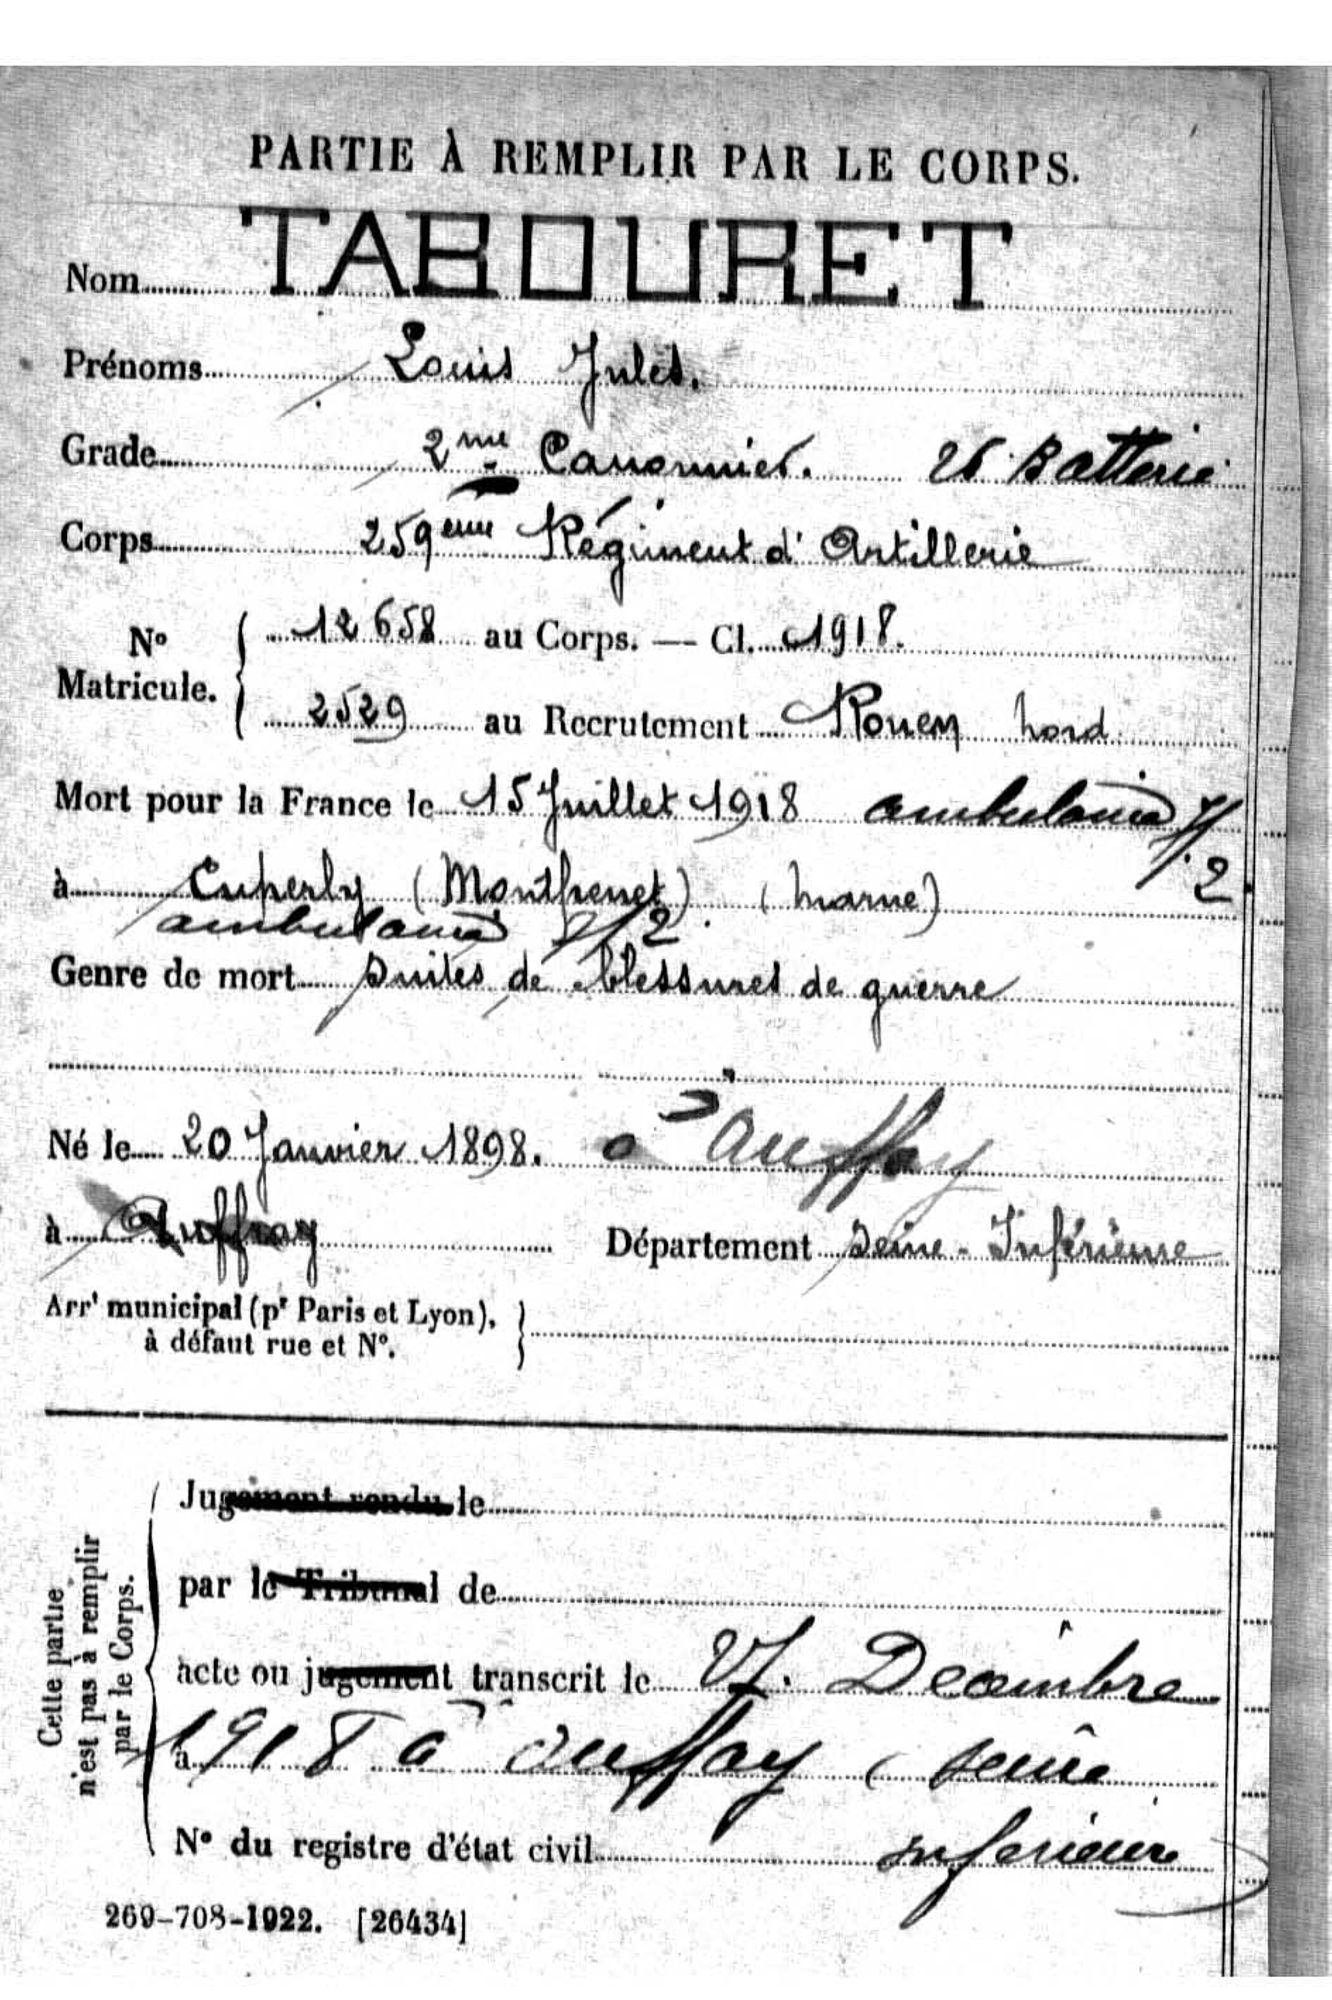 PARTIE À REMPLIR PAR LE CORPS.
Nom TABOURET
Prénoms Louis Jules.
Grade 2me Canonnier. 26 Batterie
Corps 259eme Régiment d'Artillerie
No Matricule. 12658 au Corps. — Cl. 1918.
2529 au Recrutement Rouen nord
Mort pour la France le 15 Juillet 1918 ambulance
à Cuperly (Montfrenet) (Marne)
ambulance
Genre de mort suites de blessures de guerre
Né le 20 Janvier 1898. à Auffay
à Auffray Département Seine-Inférieure
Arrt municipal (pr Paris et Lyon),
à défaut rue et No.
Cette partie
n'est pas à remplir
par le Corps.
Jugement rendu le
par le Tribunal de
acte ou jugement transcrit le Decembre
à 1918 a auffay (seine
No du registre d'état civil inferieure)
269-708-1922. [26434]